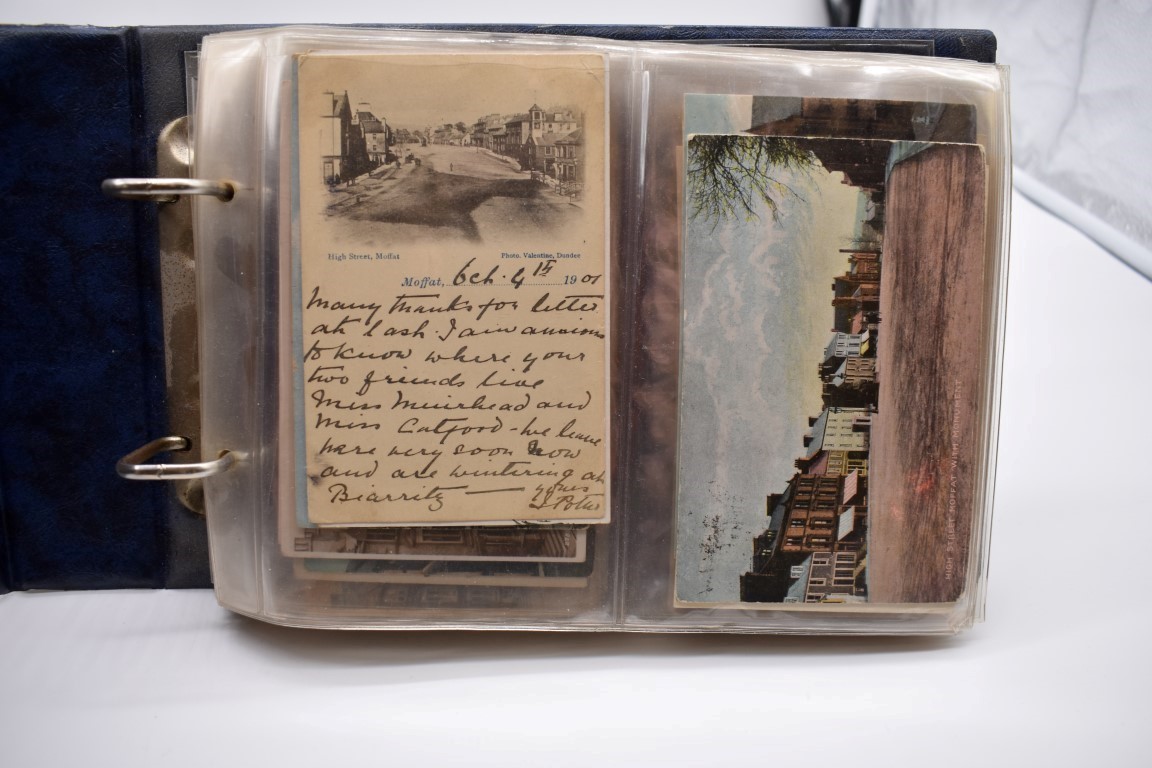 High Street, Moffat
Photo. Valentine, Dundee
Moffat, Oct. 4th 1901
Many thanks for letter
at last. I am anxious
to know where your
two friends live
Miss Muirhead and
Miss Catgood - we leave
here very soon now
and are wintering at
Biarritz — yours
HIGH STREET MOFFAT WITH MONUMENT